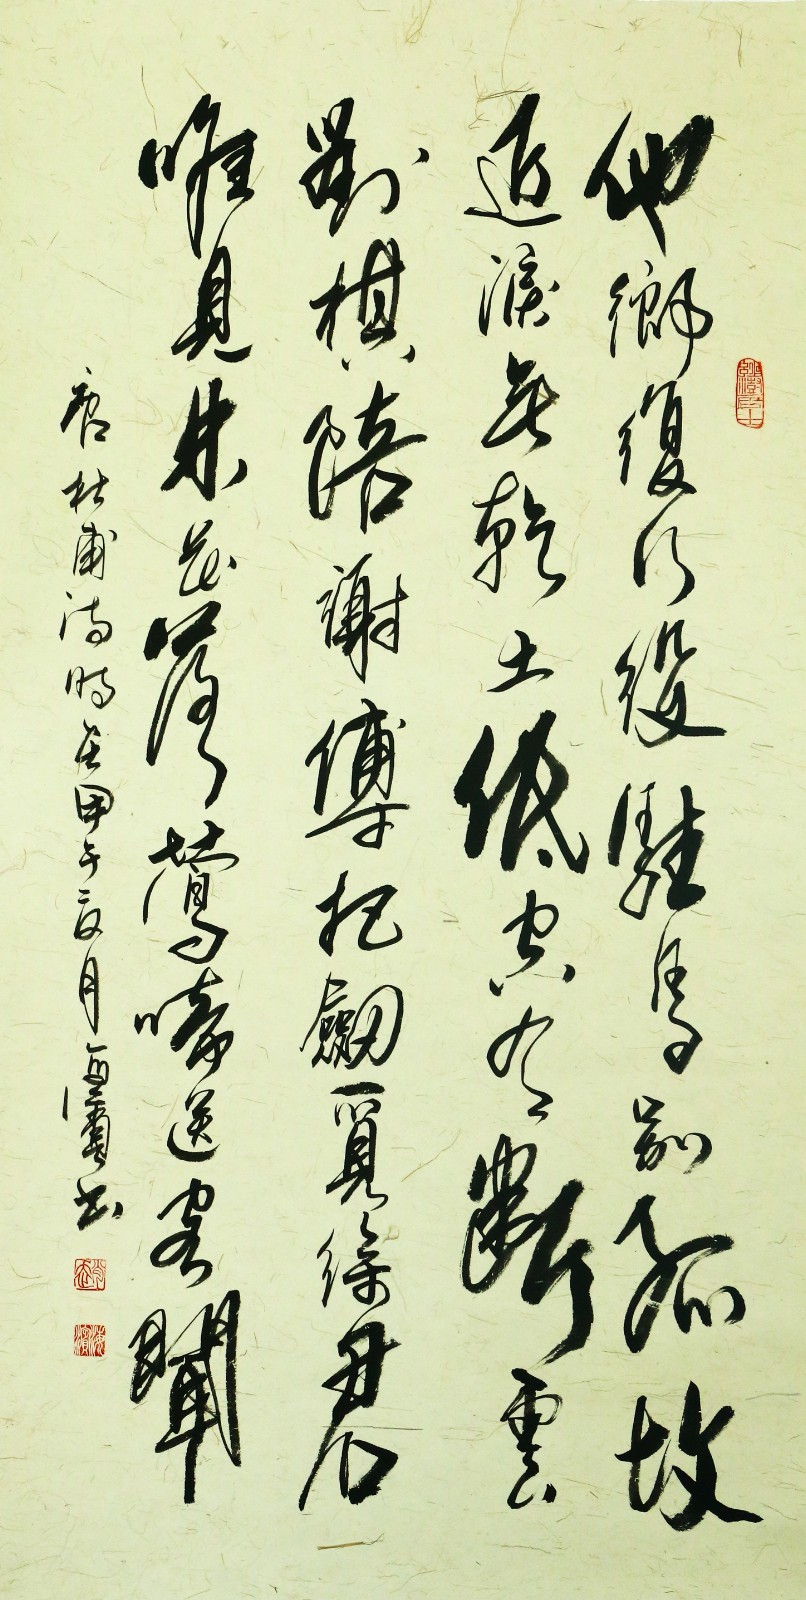 他鄉復行役駐馬別孤坟
近淚無乾土低空有斷雲
對棋陪謝傅把劍覓徐君
唯見林花落鶯啼送客聞
唐杜甫詩時在甲午夏月海濱書